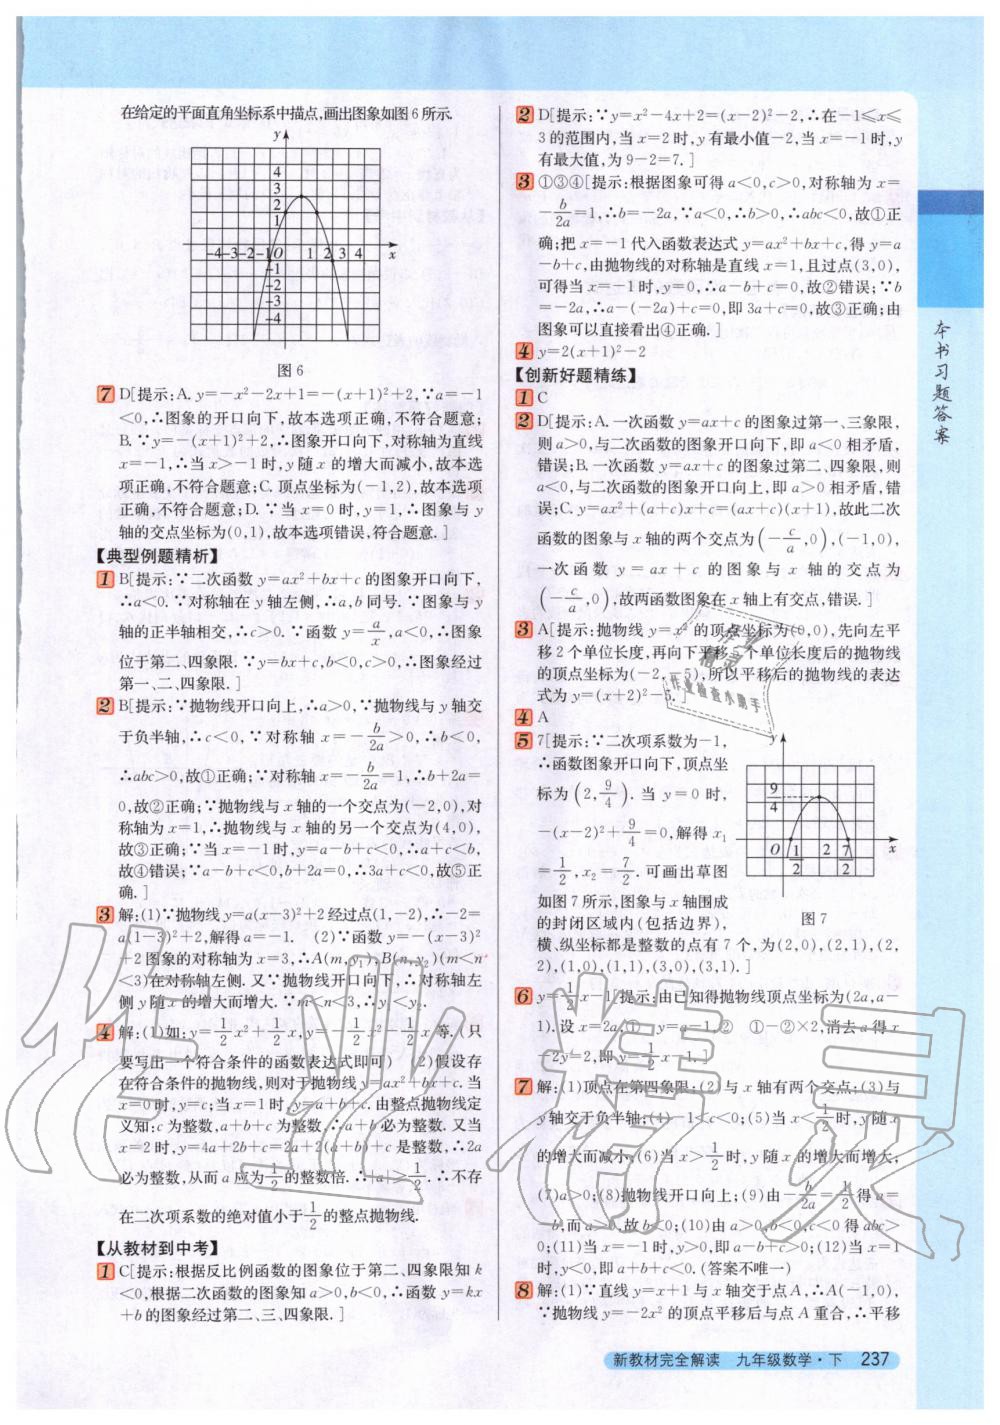 在给定的平面直角坐标系中描点,画出图象如图6所示.
y
4
3
2
1
-4-3-2-1O 1 2 3 4 x
-1
-2
-3
-4
图6
7 D[提示:A. y=-x²-2x+1=-(x+1)²+2,∵a=-1
<0,∴图象的开口向下,故本选项正确,不符合题意;
B. ∵y=-(x+1)²+2,∴图象开口向下,对称轴为直线
x=-1,∴当x>-1时,y随x的增大而减小,故本选
项正确,不符合题意;C. 顶点坐标为(-1,2),故本选项
正确,不符合题意;D. ∵当x=0时,y=1,∴图象与y
轴的交点坐标为(0,1),故本选项错误,符合题意.]
【典型例题精析】
1 B[提示:∵二次函数y=ax²+bx+c的图象开口向下,
∴a<0. ∵对称轴在y轴左侧,∴a,b同号. ∵图象与y
轴的正半轴相交,∴c>0. ∵函数y=a/x,a<0,∴图象
位于第二、四象限. ∵y=bx+c,b<0,c>0,∴图象经过
第一、二、四象限.]
2 B[提示:∵抛物线开口向上,∴a>0,∵抛物线与y轴交
于负半轴,∴c<0,∵对称轴x=-b/2a>0,∴b<0,
∴abc>0,故①正确;∵对称轴x=-b/2a=1,∴b+2a=
0,故②正确;∵抛物线与x轴的一个交点为(-2,0),对
称轴为x=1,∴抛物线与x轴的另一个交点为(4,0),
故③正确;∵当x=-1时,y=a-b+c<0,∴a+c<b,
故④错误;∵a-b+c<0,b+2a=0,∴3a+c<0,故⑤正
确.]
3 解:(1)∵抛物线y=a(x-3)²+2经过点(1,-2),∴-2=
a(1-3)²+2,解得a=-1. (2)∵函数y=-(x-3)²
+2图象的对称轴为x=3,∴A(m,y₁),B(n,y₂)(m<n
<3)在对称轴左侧. 又∵抛物线开口向下,∴对称轴左
侧y随x的增大而增大. ∵m<n<3,∴y₁<y₂.
4 解:(1)如:y=1/2x²+1/2x,y=-1/2x²-1/2x等.(只
要写出一个符合条件的函数表达式即可) (2)假设存
在符合条件的抛物线,则对于抛物线y=ax²+bx+c. 当
x=0时,y=c;当x=1时,y=a+b+c. 由整点抛物线定
义知:c为整数,a+b+c为整数,∴a+b必为整数. 又当
x=2时,y=4a+2b+c=2a+2(a+b)+c是整数,∴2a
必为整数,从而a应为1/2的整数倍. ∴|a|≥1/2. ∴不存
在二次项系数的绝对值小于1/2的整点抛物线.
【从教材到中考】
1 C[提示:根据反比例函数的图象位于第二、四象限知k
<0,根据二次函数的图象知a>0,b<0,∴函数y=kx
+b的图象经过第二、三、四象限.]
2 D[提示:∵y=x²-4x+2=(x-2)²-2,∴在-1≤x≤
3的范围内,当x=2时,y有最小值-2,当x=-1时,y
有最大值,为9-2=7.]
3 ①③④[提示:根据图象可得a<0,c>0,对称轴为x=
-b/2a=1,∴b=-2a,∵a<0,∴b>0,∴abc<0,故①正
确;把x=-1代入函数表达式y=ax²+bx+c,得y=a
-b+c,由抛物线的对称轴是直线x=1,且过点(3,0),
可得当x=-1时,y=0,∴a-b+c=0,故②错误;∵b
=-2a,∴a-(-2a)+c=0,即3a+c=0,故③正确;由
图象可以直接看出④正确.]
4 y=2(x+1)²-2
【创新好题精练】
1 C
2 D[提示:A. 一次函数y=ax+c的图象过第一、三象限,
则a>0,与二次函数的图象开口向下,即a<0相矛盾,
错误;B. 一次函数y=ax+c的图象过第二、四象限,则
a<0,与二次函数的图象开口向上,即a>0相矛盾,错
误;C. y=ax²+(a+c)x+c=(ax+c)(x+1),故此二次
函数的图象与x轴的两个交点为(-c/a,0),(-1,0),
一次函数y=ax+c的图象与x轴的交点为
(-c/a,0),故两函数图象在x轴上有交点,错误.]
3 A[提示:抛物线y=x²的顶点坐标为(0,0),先向左平
移2个单位长度,再向下平移5个单位长度后的抛物线
的顶点坐标为(-2,-5),所以平移后的抛物线的表达
式为y=(x+2)²-5.]
4 A
5 7[提示:∵二次项系数为-1,
∴函数图象开口向下,顶点坐
标为(2,9/4). 当y=0时,
-(x-2)²+9/4=0,解得x₁
=1/2,x₂=7/2. 可画出草图
如图7所示,图象与x轴围成
的封闭区域内(包括边界),
y
9/4
O 1/2 2 7/2 x
图7
横、纵坐标都是整数的点有7个,为(2,0),(2,1),(2,
2),(1,0),(1,1),(3,0),(3,1).]
6 y=1/2x-1[提示:由已知得抛物线顶点坐标为(2a,a-
1). 设x=2a,① y=a-1,② ①-②×2,消去a得x
-2y=2,即y=1/2x-1.]
7 解:(1)顶点在第四象限;(2)与x轴有两个交点;(3)与
y轴交于负半轴;(4)-1<c<0;(5)当x<1/2时,y随x
的增大而减小;(6)当x>1/2时,y随x的增大而增大;
(7)a>0;(8)抛物线开口向上;(9)由-b/2a=1/2得a=
-b,而a>0,故b<0;(10)由a>0,b<0,c<0得abc>
0;(11)当x=-1时,y>0,即a-b+c>0;(12)当x=1
时,y<0,即a+b+c<0.(答案不唯一)
8 解:(1)∵直线y=x+1与x轴交于点A,∴A(-1,0),
∵抛物线y=-2x²的顶点平移后与点A重合,∴平移
本书习题答案
作业检查小助手
作业精灵
新教材完全解读 九年级数学·下 237